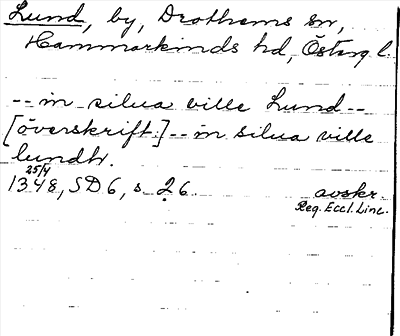 Lund, by, Drothems sn,
Hammarkinds hd, Östergl.
-- in silua ville Lund --
[överskrift.] -- in silua ville
lundh.
25/4
1348, SD 6, s. 26. avskr.
Reg. Eccl. Linc.